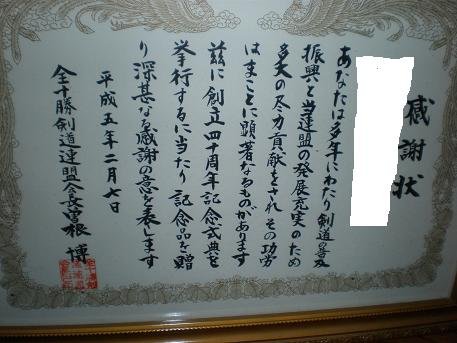 感謝状
あなたは多年にわたり剣道の普及
振興と当連盟の発展充実のため
多大の尽力貢献をされ その功労
はまことに顕著なるものがあります
茲に創立四十周年記念式典を
挙行するに当たり 記念品を贈
り深甚な感謝の意を表します
平成五年二月七日
全十勝剣道連盟会長曽根 博